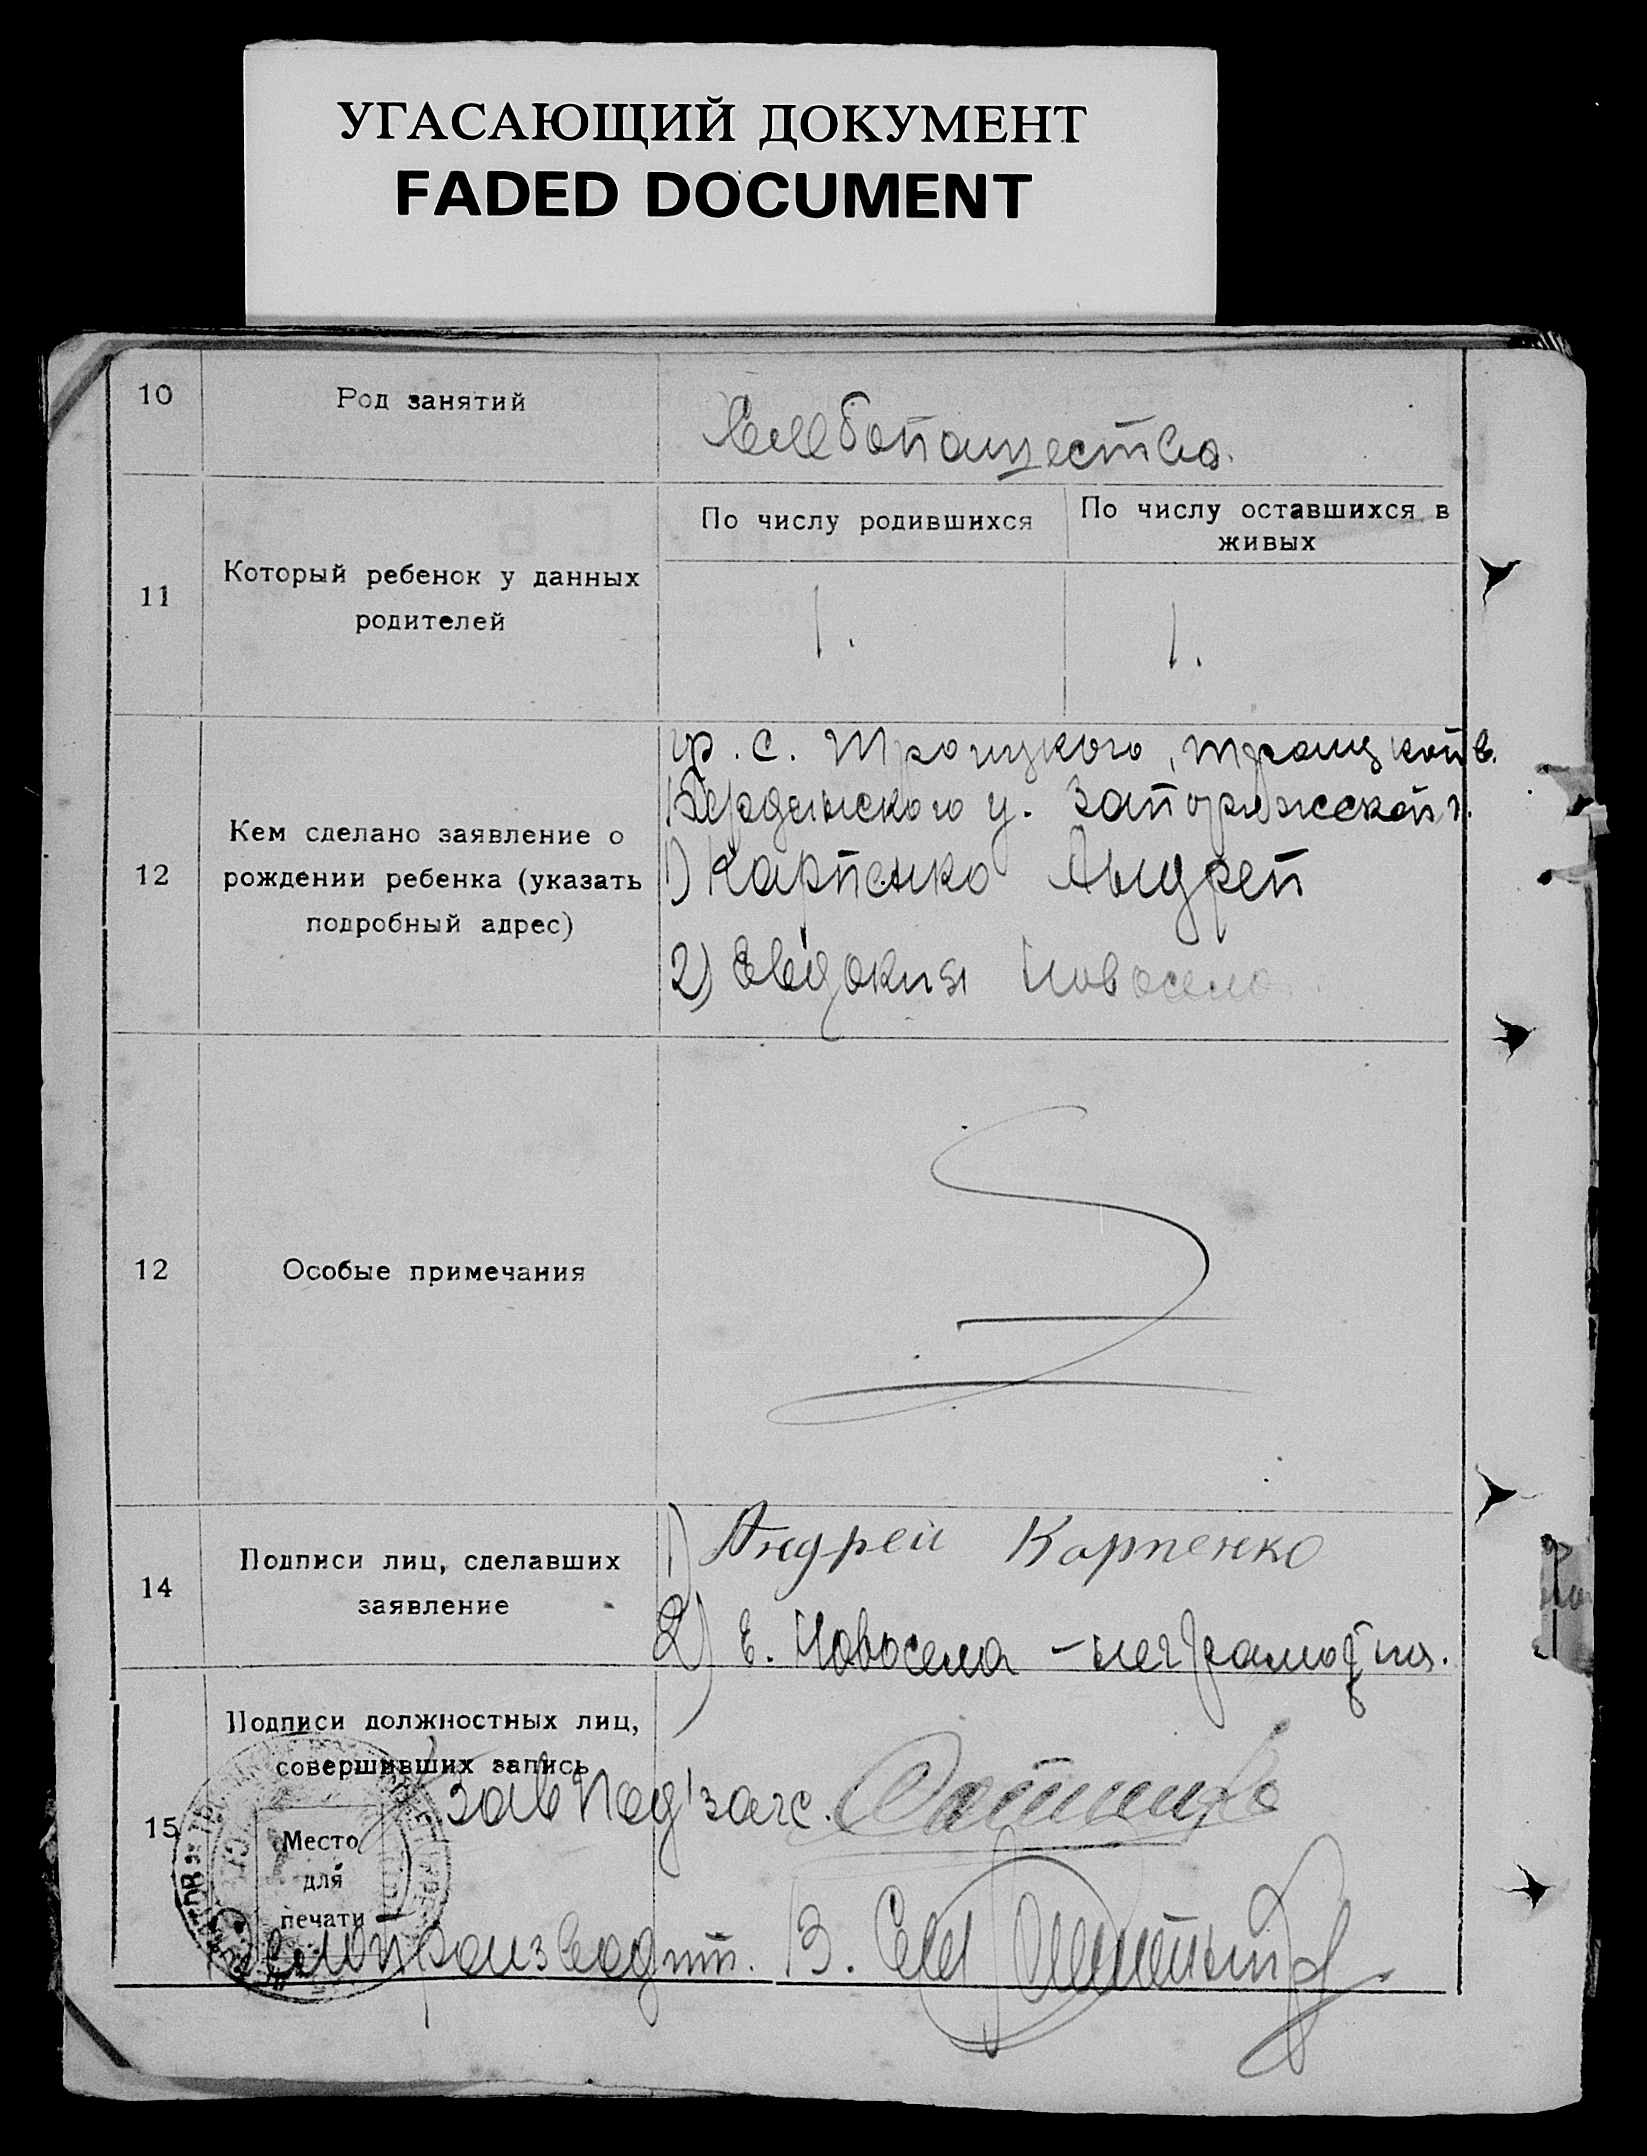 УГАСАЮЩИЙ ДОКУМЕНТ
FADED DOCUMENT
10
Род занятий
Хлебопашество.
11
Который ребенок у данных
родителей
По числу родившихся
По числу оставшихся в
живых
1.
1.
12
Кем сделано заявление о
рождении ребенка (указать
подробный адрес)
гр. с. Троицкого, Троицкой в.
Бердянского у. Запорожской г.
1) Карпенко Андрей
2) Евдокия Новосела
12
Особые примечания
14
Подписи лиц, сделавших
заявление
1) Андрей Карпенко
2) Е. Новосела - неграмотна.
15
Подписи должностных лиц,
совершивших запись
Завподзагс.
Место
для
печати
Делопроизводит.